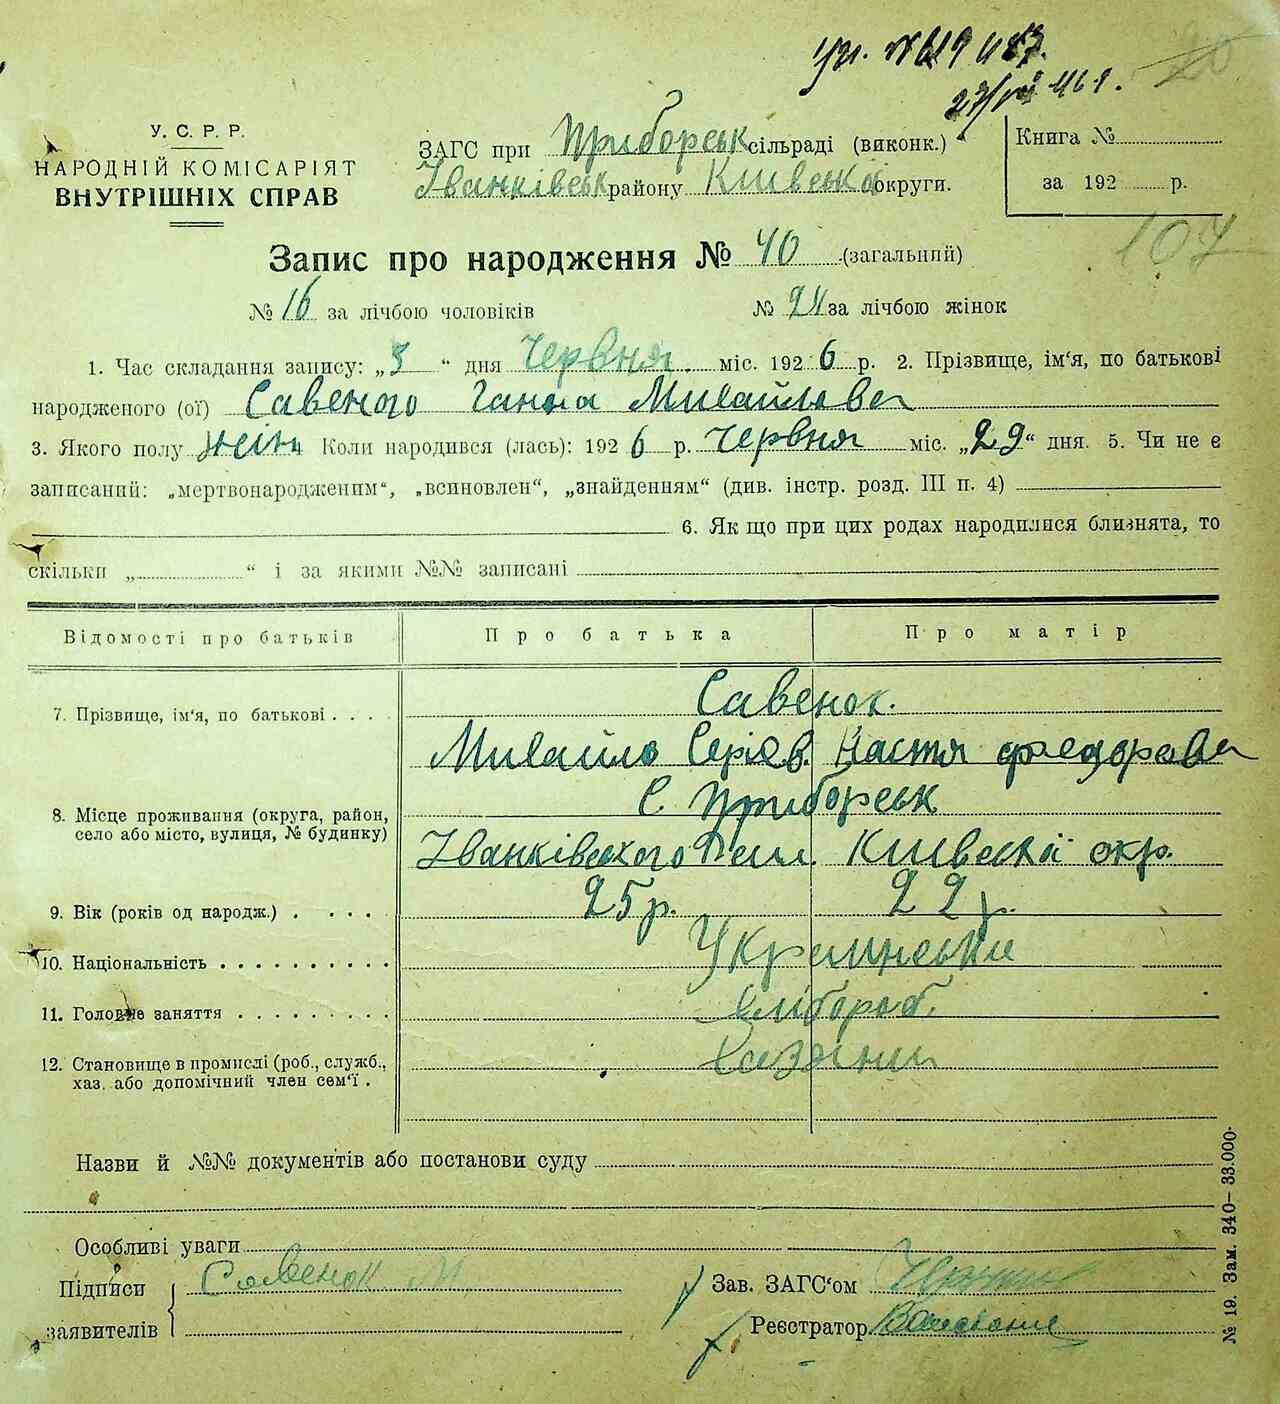 27/VII 46 р.
20
У. С. Р. Р.
НАРОДНІЙ КОМІСАРІЯТ
ВНУТРІШНІХ СПРАВ
ЗАГС при Приборськ сільраді (виконк.)
Іванківськ району Київської округи.
Книга №
за 192 р.
107
Запис про народження № 40 (загальний)
№ 16 за лічбою чоловіків № 24 за лічбою жінок
1. Час складання запису: „3“ дня Червня. міс. 1926 р. 2. Прізвище, ім'я, по батькові
народженого (ої) Савеного Ганна Михайлова
3. Якого полу жін 4 Коли народився (лась): 1926 р. Червня міс. „29“ дня. 5. Чи не є
записаний: „мертвонародженим“, „всиновлен“, „знайденням“ (див. інстр. розд. III п. 4)
6. Як що при цих родах народилися близнята, то
скільки „ “ і за якими №№ записані
Відомості про батьків Про батька Про матір
7. Прізвище, ім'я, по батькові . . . . Савенок.
Михайло Сергієв. Настя Федорова
8. Місце проживання (округа, район,
село або місто, вулиця, № будинку)
С. Приборськ
Іванківського Київської окр.
9. Вік (років од народж.) . . . . 25 р. 22 р.
10. Національність . . . . . . . . . . Українські
11. Головне заняття . . . . . . . . . хлібороб.
12. Становище в промислі (роб., служб.,
хаз. або допомічний член сем'ї . Хазяїни
Назви й №№ документів або постанови суду
Особливі уваги
Підписи
заявителів
Савенок М
Зав. ЗАГС'ом
Реєстратор
№ 19. Зам. 340—33.000.